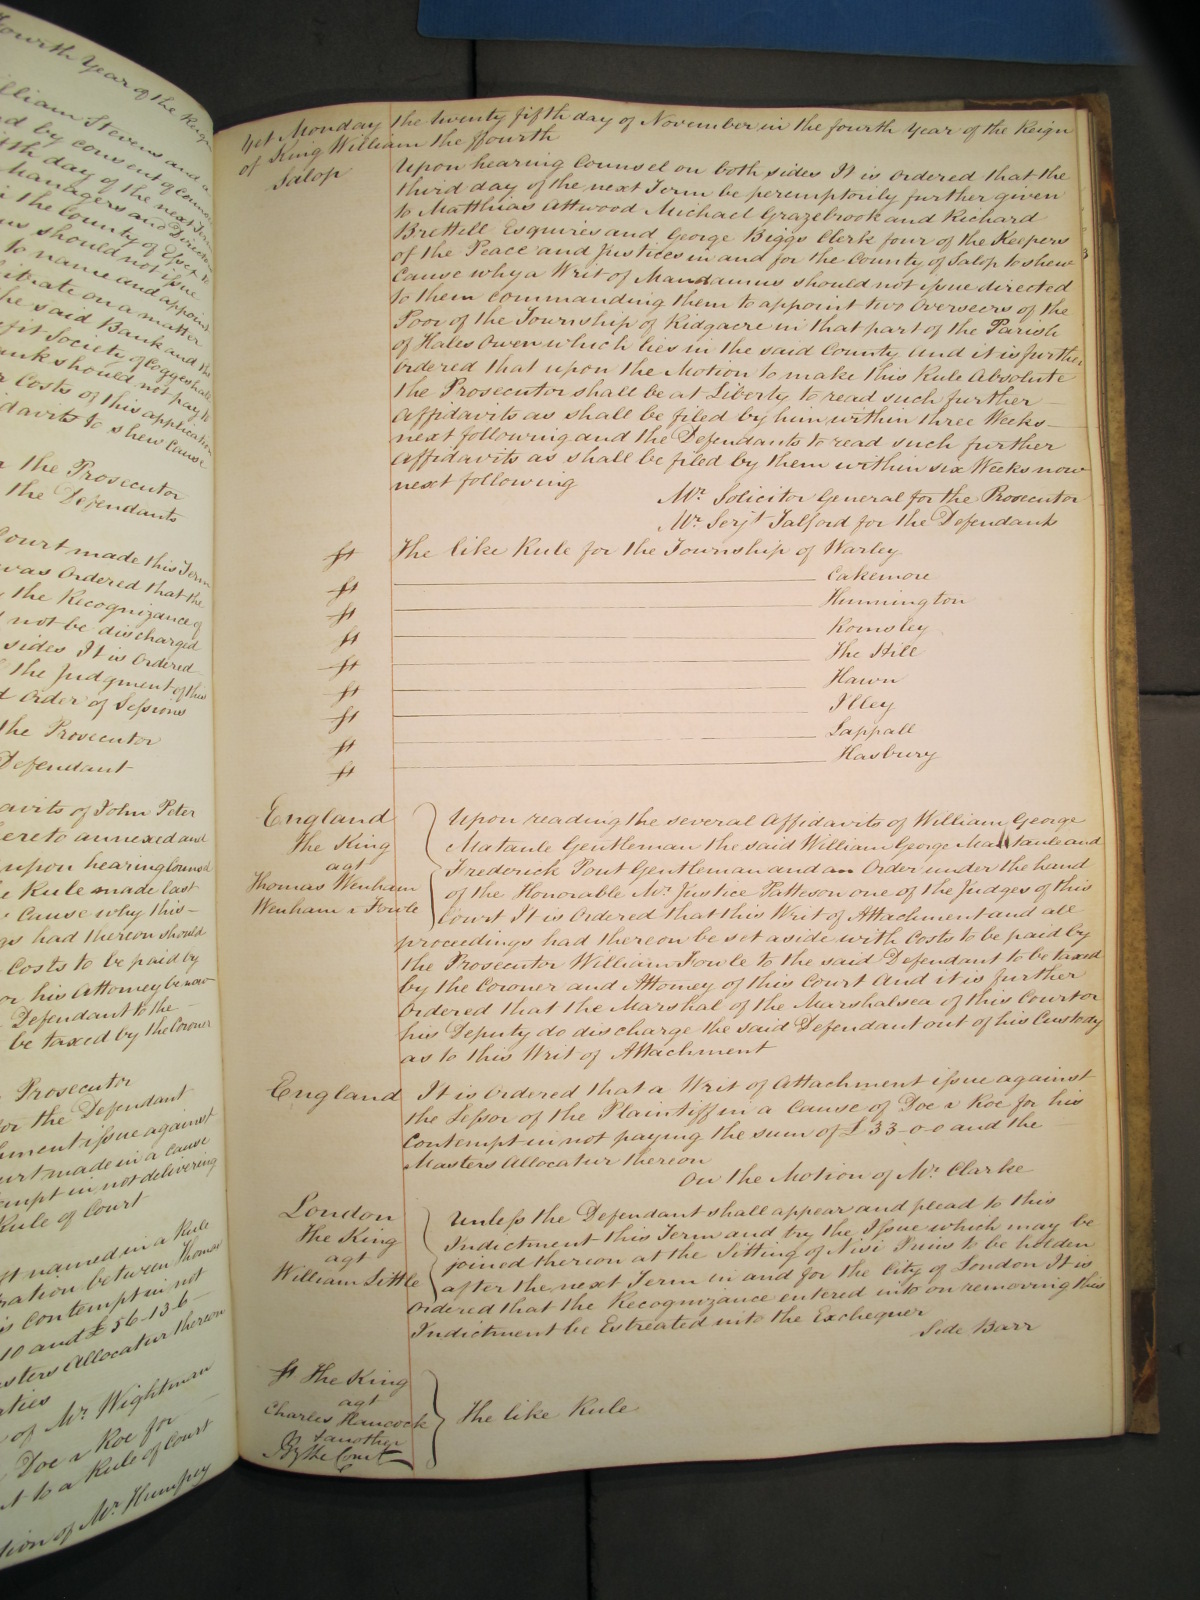 Fourth Year of the Reign
William Stevens and
by consent of Counsel
day of the next Term
Managers and Directors
in the County of Essex
should not issue
to name and appoint
Arbitrate on a matter
the said Bank and the
Benefit Society of Coggeshall
Bank should not pay
Costs of this application
Affidavits to shew Cause
the Prosecutor
the Defendants
Court made this Term
was Ordered that the
the Recognizance of
not be discharged
sides It is Ordered
the Judgment of this
Order of Sessions
the Prosecutor
Defendant
Affidavits of John Peter
hereto annexed and
upon hearing Counsel
Rule made last
Cause why this
had thereon should
Costs to be paid by
or his Attorney be now
Defendant to the
be taxed by the Coroner
Prosecutor
for the Defendant
Attachment issue against
Court made in a Cause
Contempt in not delivering
Rule of Court
named in a Rule
between Thomas
Contempt in not
10 and £56-13-6
Masters Allocatur thereon
of Mr. Wightman
Doe v Roe for
to a Rule of Court
Motion of Mr. Humfrey
Yet Monday the twenty fifth day of November in the fourth Year of the Reign
of King William the ffourth
Salop
Upon hearing Counsel on both sides It is ordered that the
third day of the next Term be peremptorily further given
to Matthias Attwood Michael Grazebrook and Richard
Brettell Esquires and George Biggs Clerk four of the Keepers
of the Peace and Justices in and for the County of Salop to shew
Cause why a Writ of Mandamus should not issue directed
to them commanding them to appoint two Overseers of the
Poor of the Township of Ridgacre in that part of the Parish
of Hales Owen which lies in the said County And it is further
Ordered that upon the Motion to make this Rule Absolute
the Prosecutor shall be at Liberty to read such further
Affidavits as shall be filed by him within three Weeks
next following and the Defendants to read such further
Affidavits as shall be filed by them within six Weeks now
next following
Mr. Solicitor General for the Prosecutor
Mr. Serjt Talford for the Defendants
ss The like Rule for the Township of Warley
ss Cakemore
ss Hunnington
ss Romsley
ss The Hill
ss Hawn
ss Illey
ss Lappall
ss Hasbury
England
The King
agt
Thomas Wenham
Wenham v Fowle
Upon reading the several Affidavits of William George
Mataule Gentleman the said William George Mataule and
Frederick Pout Gentleman and an Order under the hand
of the Honorable Mr. Justice Patteson one of the Judges of this
Court It is Ordered that this Writ of Attachment and all
proceedings had thereon be set aside with Costs to be paid by
the Prosecutor William Fowle to the said Defendant to be taxed
by the Coroner and Attorney of this Court And it is further
Ordered that the Marshal of the Marshalsea of this Court or
his Deputy do discharge the said Defendant out of his Custody
as to this Writ of Attachment
England It is Ordered that a Writ of Attachment issue against
the Lessor of the Plaintiff in a Cause of Doe v Roe for his
Contempt in not paying the sum of £33-0-0 and the
Masters Allocatur thereon
On the Motion of Mr. Clarke
London
The King
agt
William Little
Unless the Defendant shall appear and plead to this
Indictment this Term and try the Issue which may be
joined thereon at the Sitting of Nisi Prius to be holden
after the next Term in and for the City of London It is
Ordered that the Recognizance entered into on removing this
Indictment be Estreated into the Exchequer
Side Barr
ss The King
agt
Charles Hancock
& another
The like Rule
By the Court